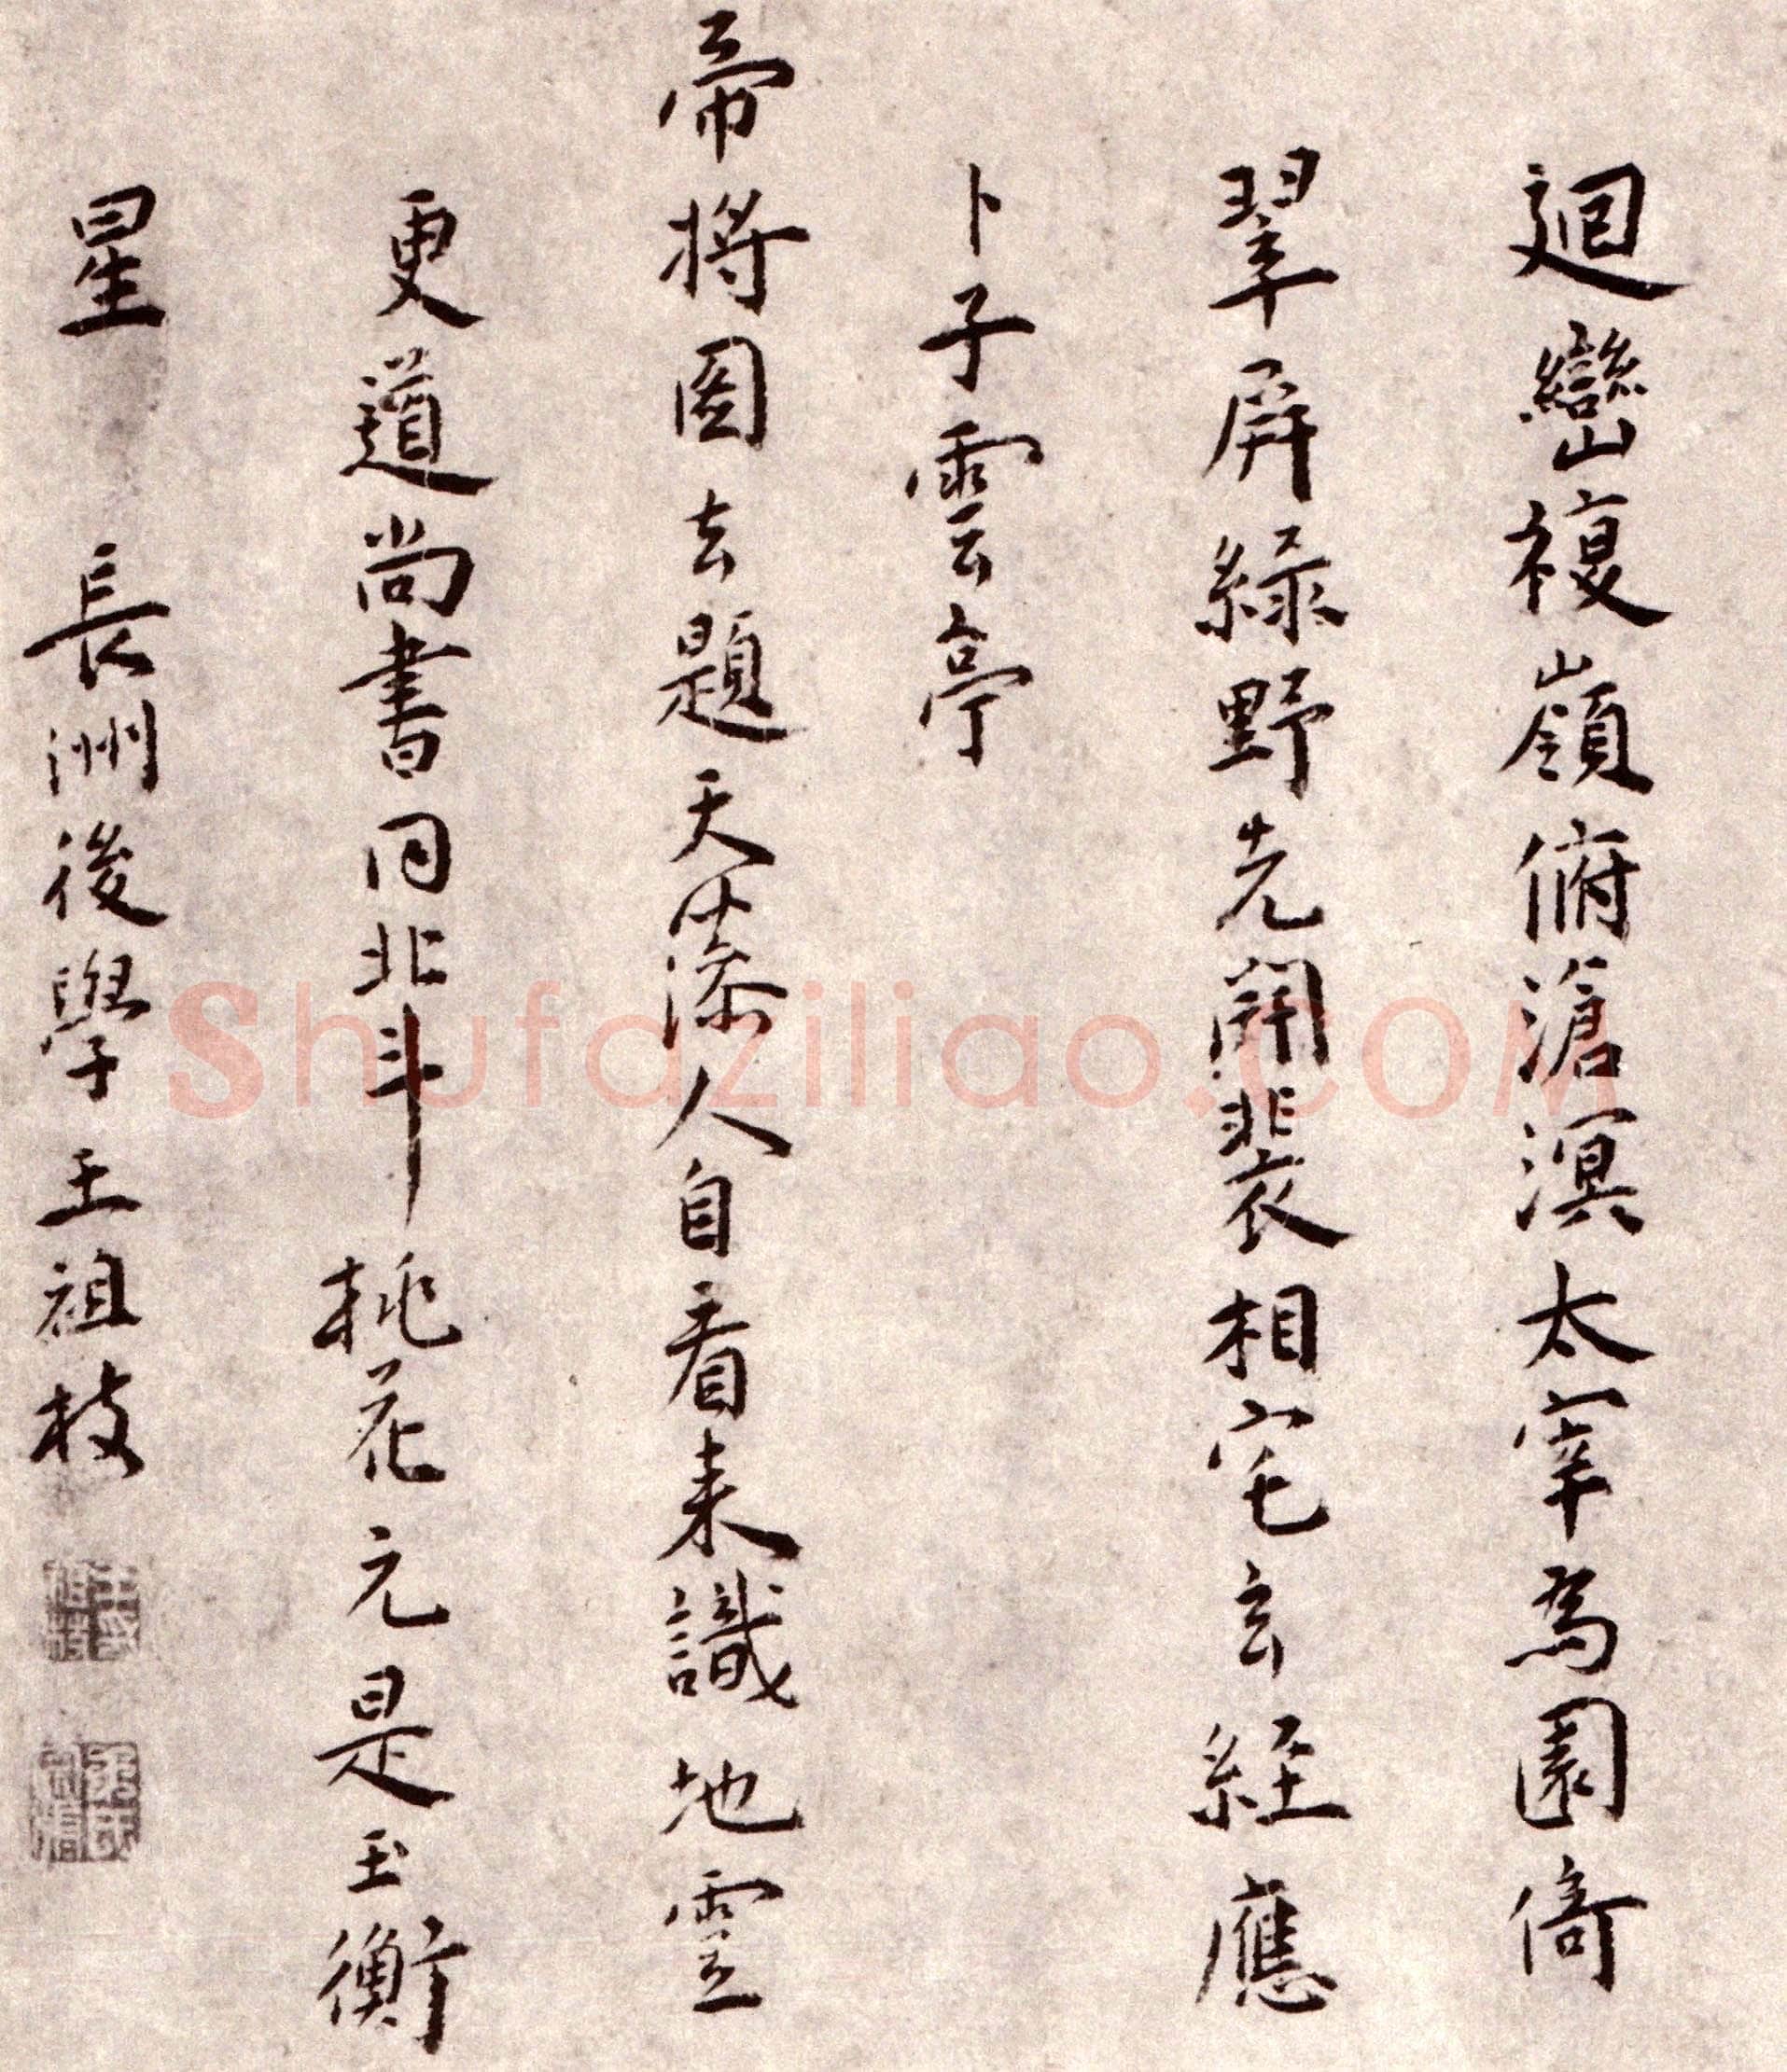 迴巒複嶺俯滄溟太宰為園倚
翠屏綠野先開裴相宅玄經應
卜子雲亭
帝將圖去題天藻人自看來識地靈
更道尚書同北斗桃花元是玉衡
星 長洲後學王祖枝
Shufaziliao.COM